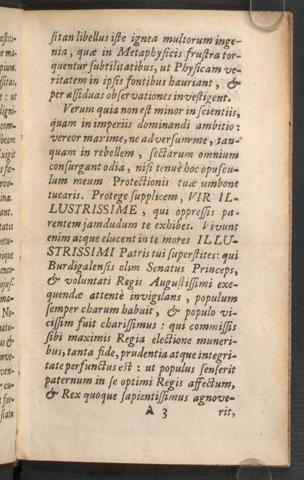 sitan libellus iste ignea multorum inge-
nia, quæ in Metaphysicis frustra tor-
quentur subtilitatibus, ut Physicam ve-
ritatem in ipsis fontibus hauriant, &
per assiduas observationes investigent.
Verum quia non est minor in scientiis,
quam in imperiis dominandi ambitio:
vereor maxime, ne adversum me, tan-
quam in rebellem, sectarum omnium
consurgant odia, nisi tenuè hoc opuscu-
lum meum Protectionis tuæ umbone
tuearis. Protege supplicem, VIR IL-
LUSTRISSIME, qui oppressis pa-
rentem jamdudum te exhibes. Vivunt
enim atque elucent in te mores ILLU-
STRISSIMI Patris tui superstites: qui
Burdigalensis olim Senatus Princeps,
& voluntati Regis Augustissimi exe-
quendæ attentè invigilans, populum
semper charum habuit, & populo vi-
cissim fuit charissimus: qui commissis
sibi maximis Regia electione muneri-
bus, tanta fide, prudentia atque integri-
tate perfunctus est: ut populus senserit
paternum in se optimi Regis affectum,
& Rex quoque sapientissimus agnove-
A 3 rit,